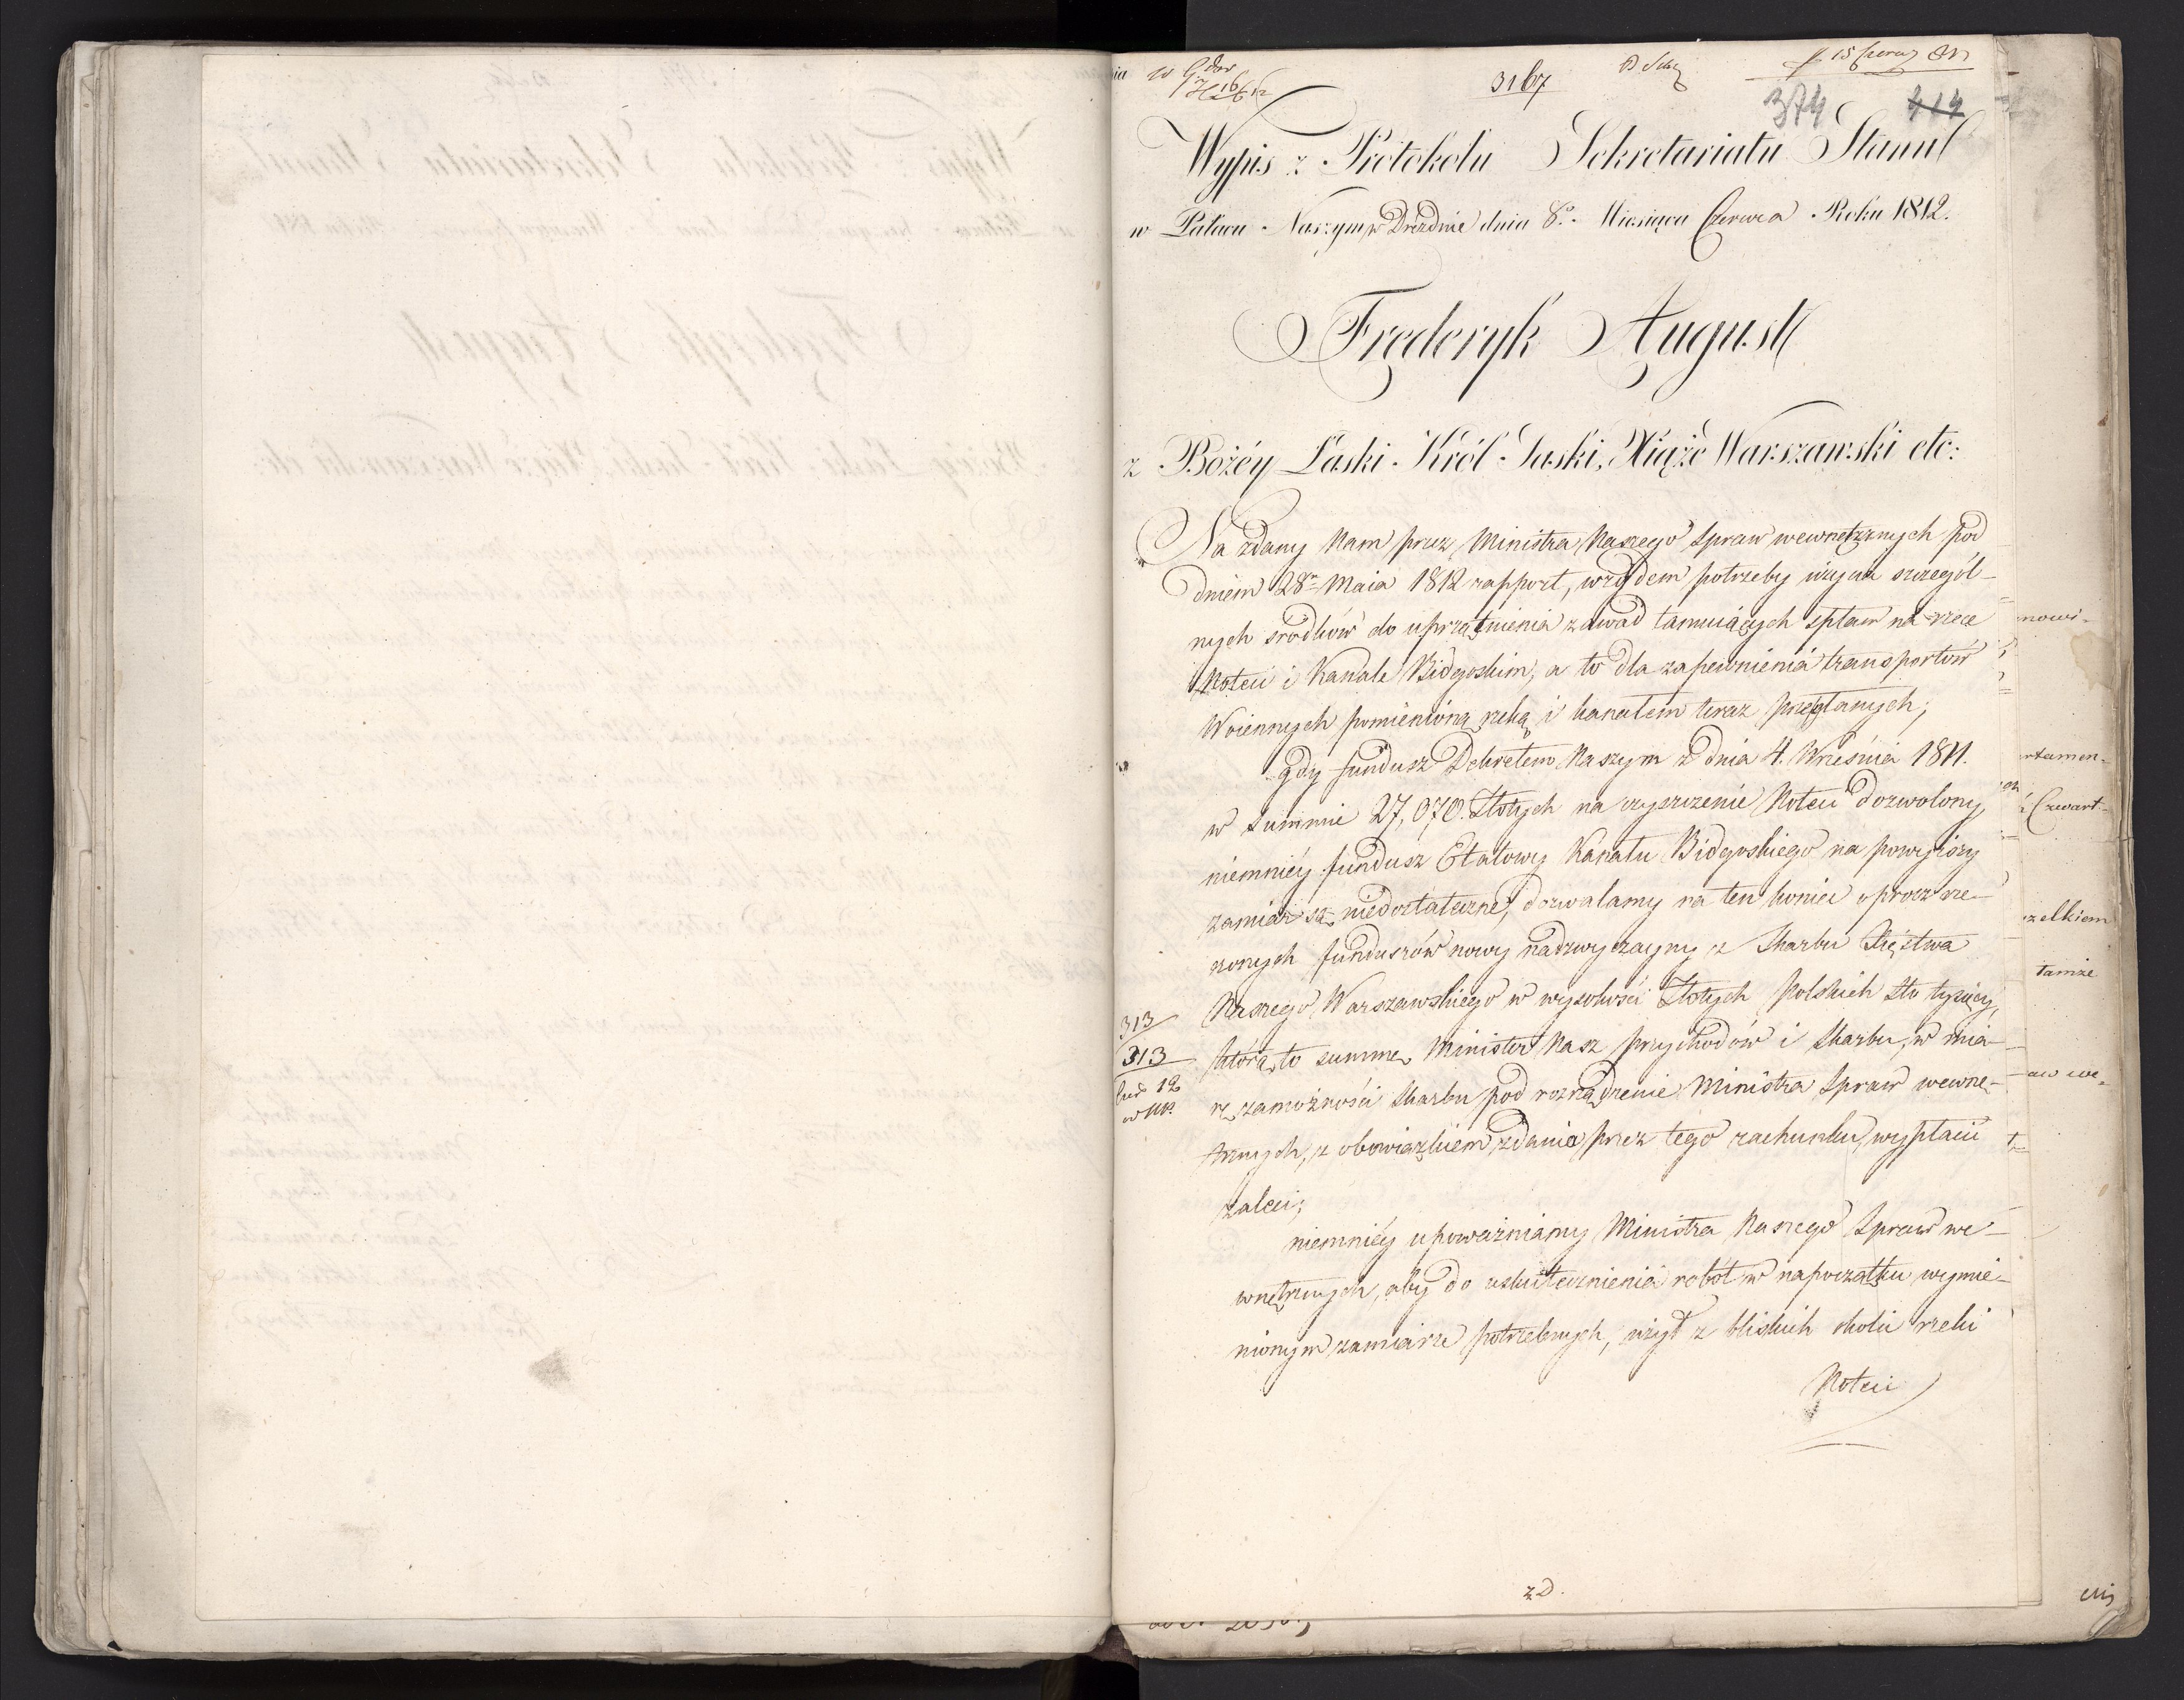 3167
374 414
Wypis z Protokołu Sekretariatu Stanu
w Pałacu Naszym w Dreźdnie dnia 8º Miesiąca Czerwca Roku 1812.
Frederyk August
z Bożéy Łaski Król Saski, Xiąże Warszawski etc:
Na zdany Nam przez Ministra Naszego Spraw wewnętrznych pod
dniem 28m Maia 1812 rapport, względem potrzeby użycia szczegól-
nych srodków do uprzątnienia zawad tamuiących spław na rzece
Noteci i Kanale Bidgoskim, a to dla zapewnienia transportów
Woiennych pomienioną rzeką i kanałem teraz przesłanych;
gdy fundusz Dekretem Naszym z dnia 4. Września 1811.
w summie 27,070. Złotych na czyszczenie Noteci dozwolony,
niemniéy fundusz Etatowy Kanału Bidgoskiego na powyższy
zamiar są niedostateczne, dozwalamy na ten koniec oprocz rze-
czonych funduszów nowy nadzwyczayny z Skarbu Xięstwa
Naszego Warszawskiego w wysokości Złotych polskich Sto tysięcy,
którą to summę Minister Nasz przychodów i Skarbu, w mia-
rę zamożności Skarbu pod rozrządzenie Ministra Spraw wewnę-
trznych, z obowiązkiem zdania przez tego rachunku, wypłacić
zaleci;
313
313
niemniéy upoważniamy Ministra Naszego Spraw we-
wnętrznych, aby do uskutecznienia robót w napoczątku wymie-
nionym zamiarze potrzebnych, użył z bliskich okolic rzeki
Noteci
nowi-
rtamen-
Czwart-
zelkiem
tamże
aw we-